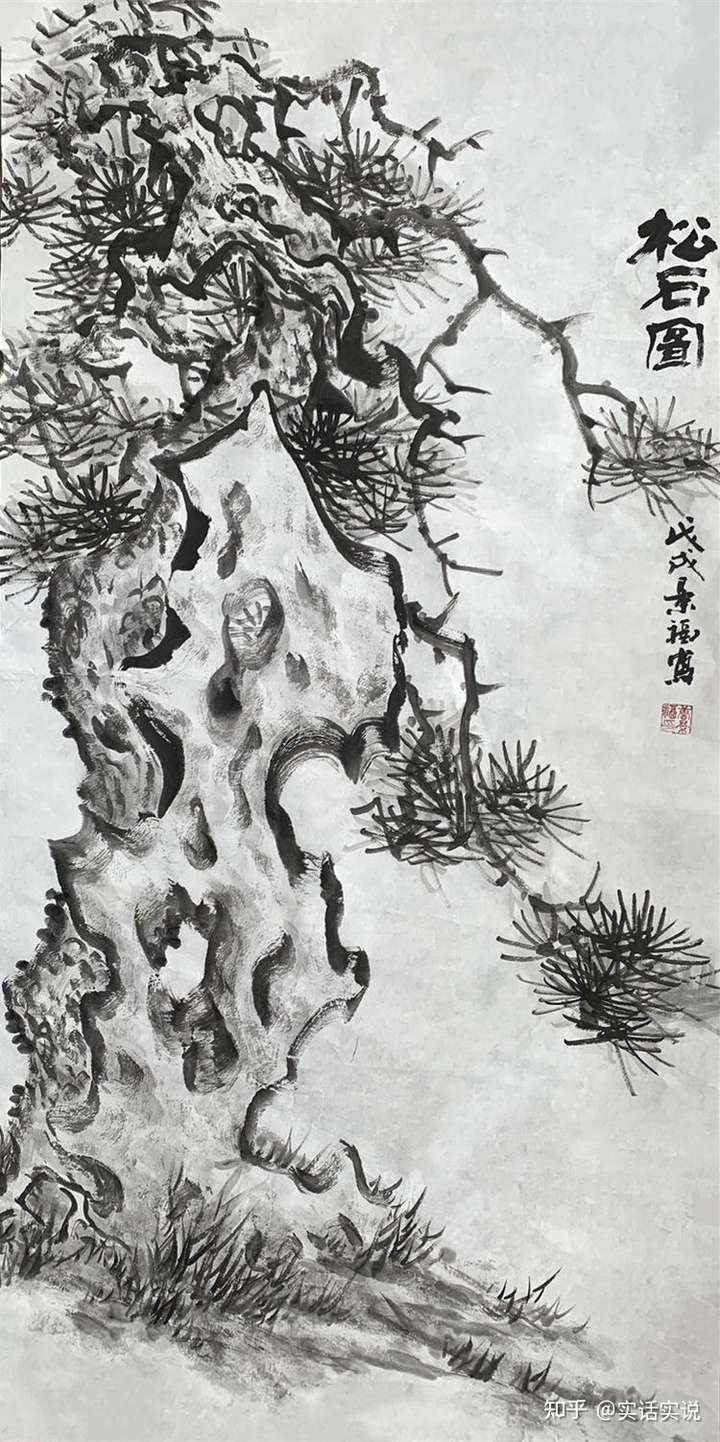 松石圖
戊戌景福寫
知乎 @实话实说